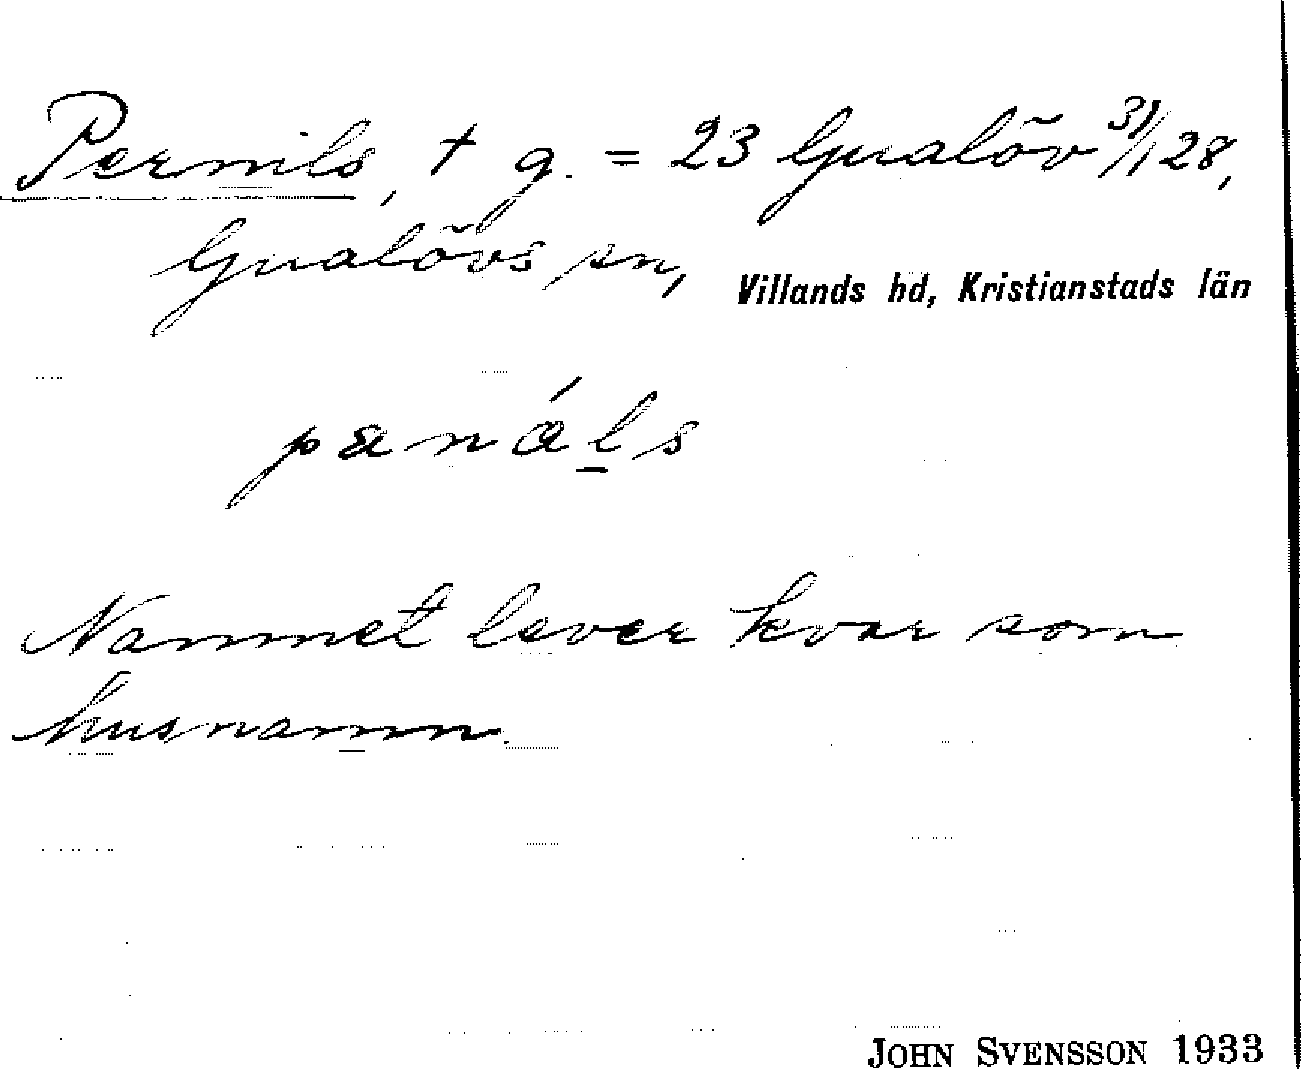 Pernils, † g. = 23 Gualöv 31/1 28,
Gualövs sn, Villands hd, Kristianstads län
panáls
Namnet lever kvar som
husnamn.
JOHN SVENSSON 1933